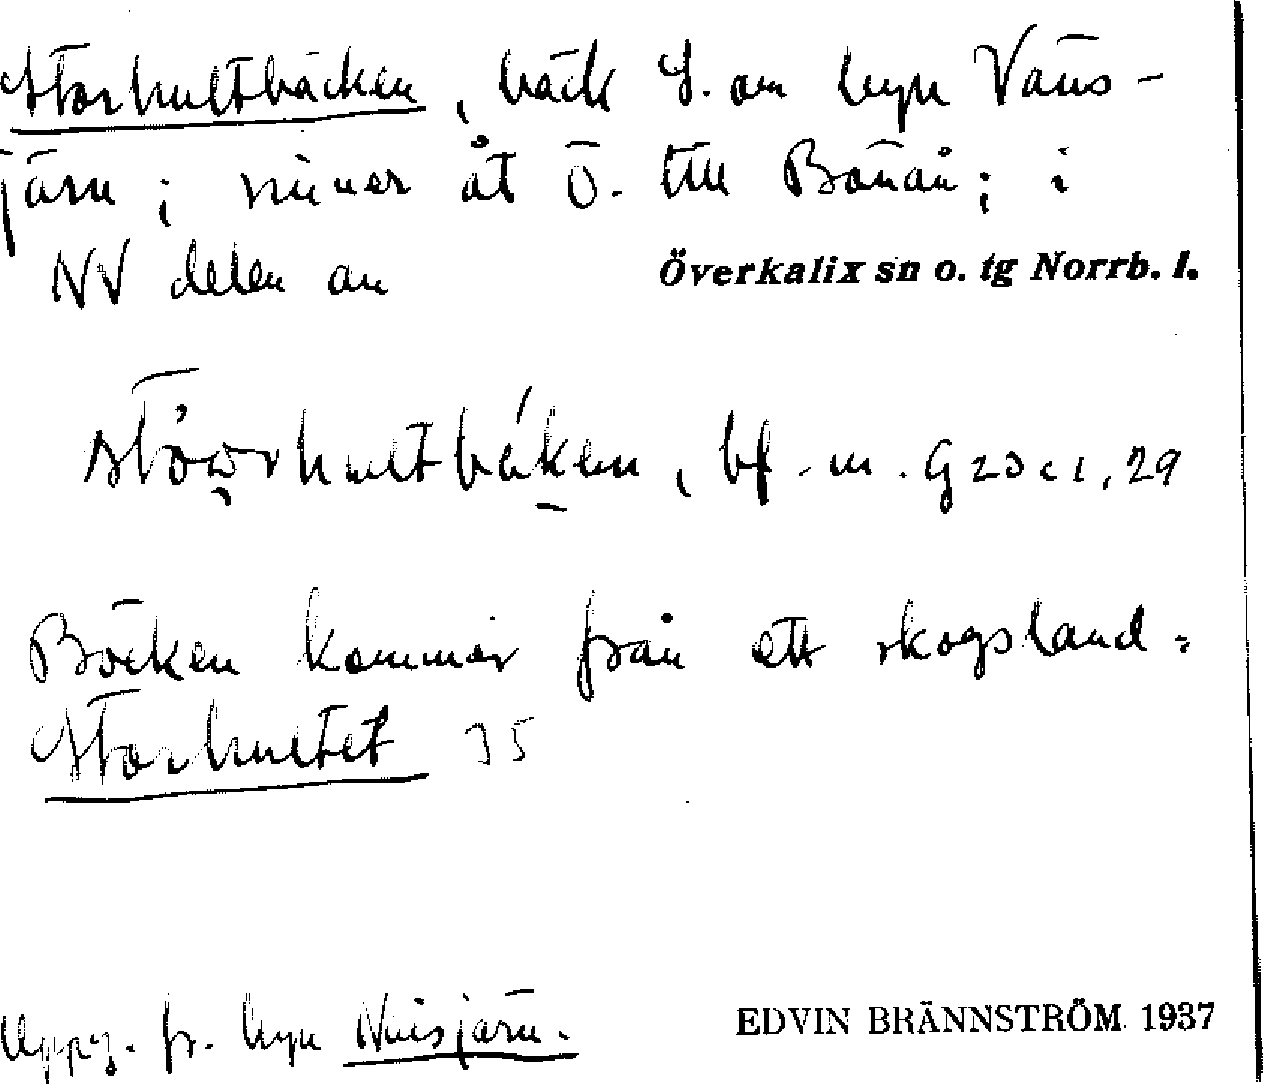 Storhultbäcken, bäck S. om byn Väns-
järn; rinner åt Ö. till Bönån; i
NV delen av Överkalix sn o. tg Norrb. l.
bf. m.
Bäcken kommer från ett skogsland =
Storhultet 35
Uppg. fr. byn
EDVIN BRÄNNSTRÖM 1937